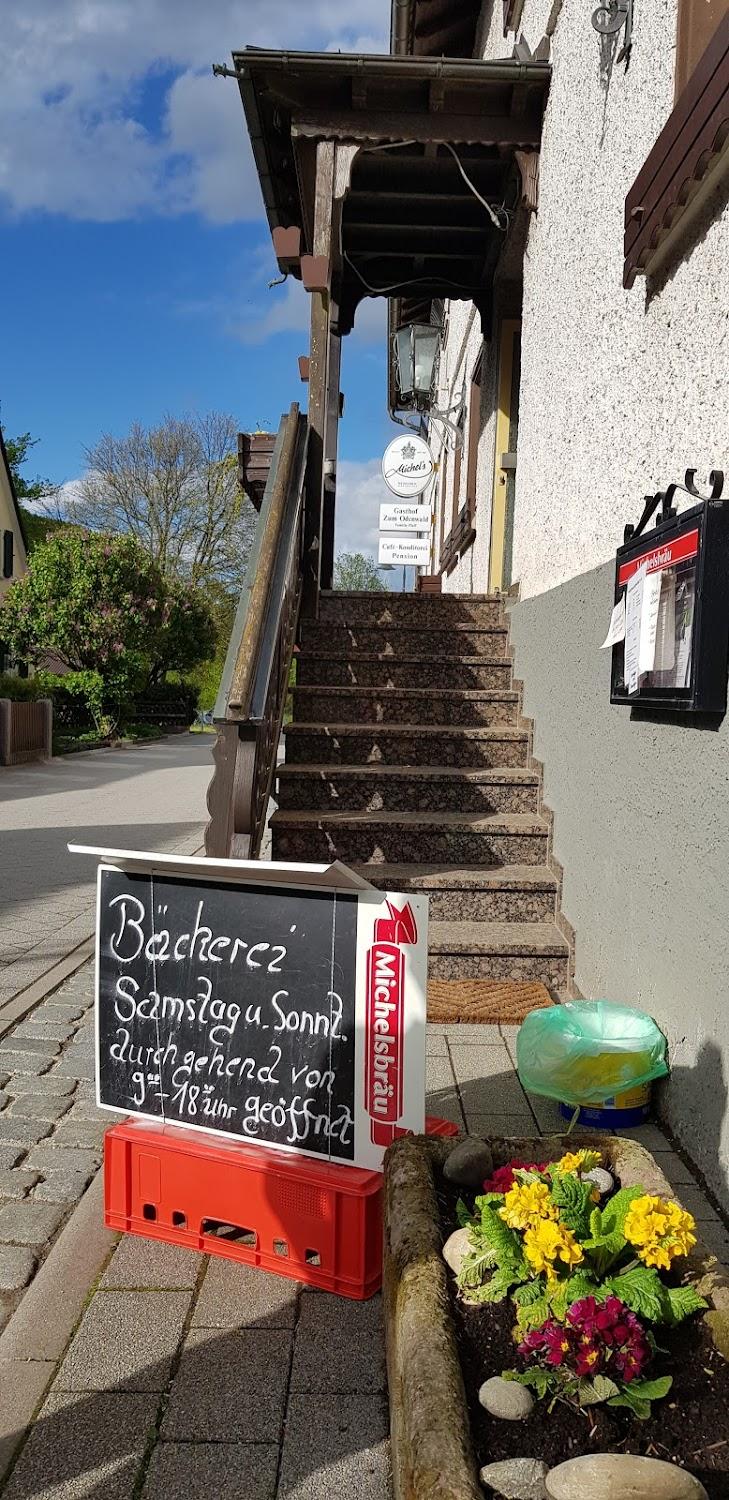 Michel's
Gasthof
Zum Odenwald
Café-Konditorei
Pension
Michelsbräu
Bäckerei
Samstag u. Sonnt.
durchgehend von
9⁰⁰-18⁰⁰ Uhr geöffnet
Michelsbräu